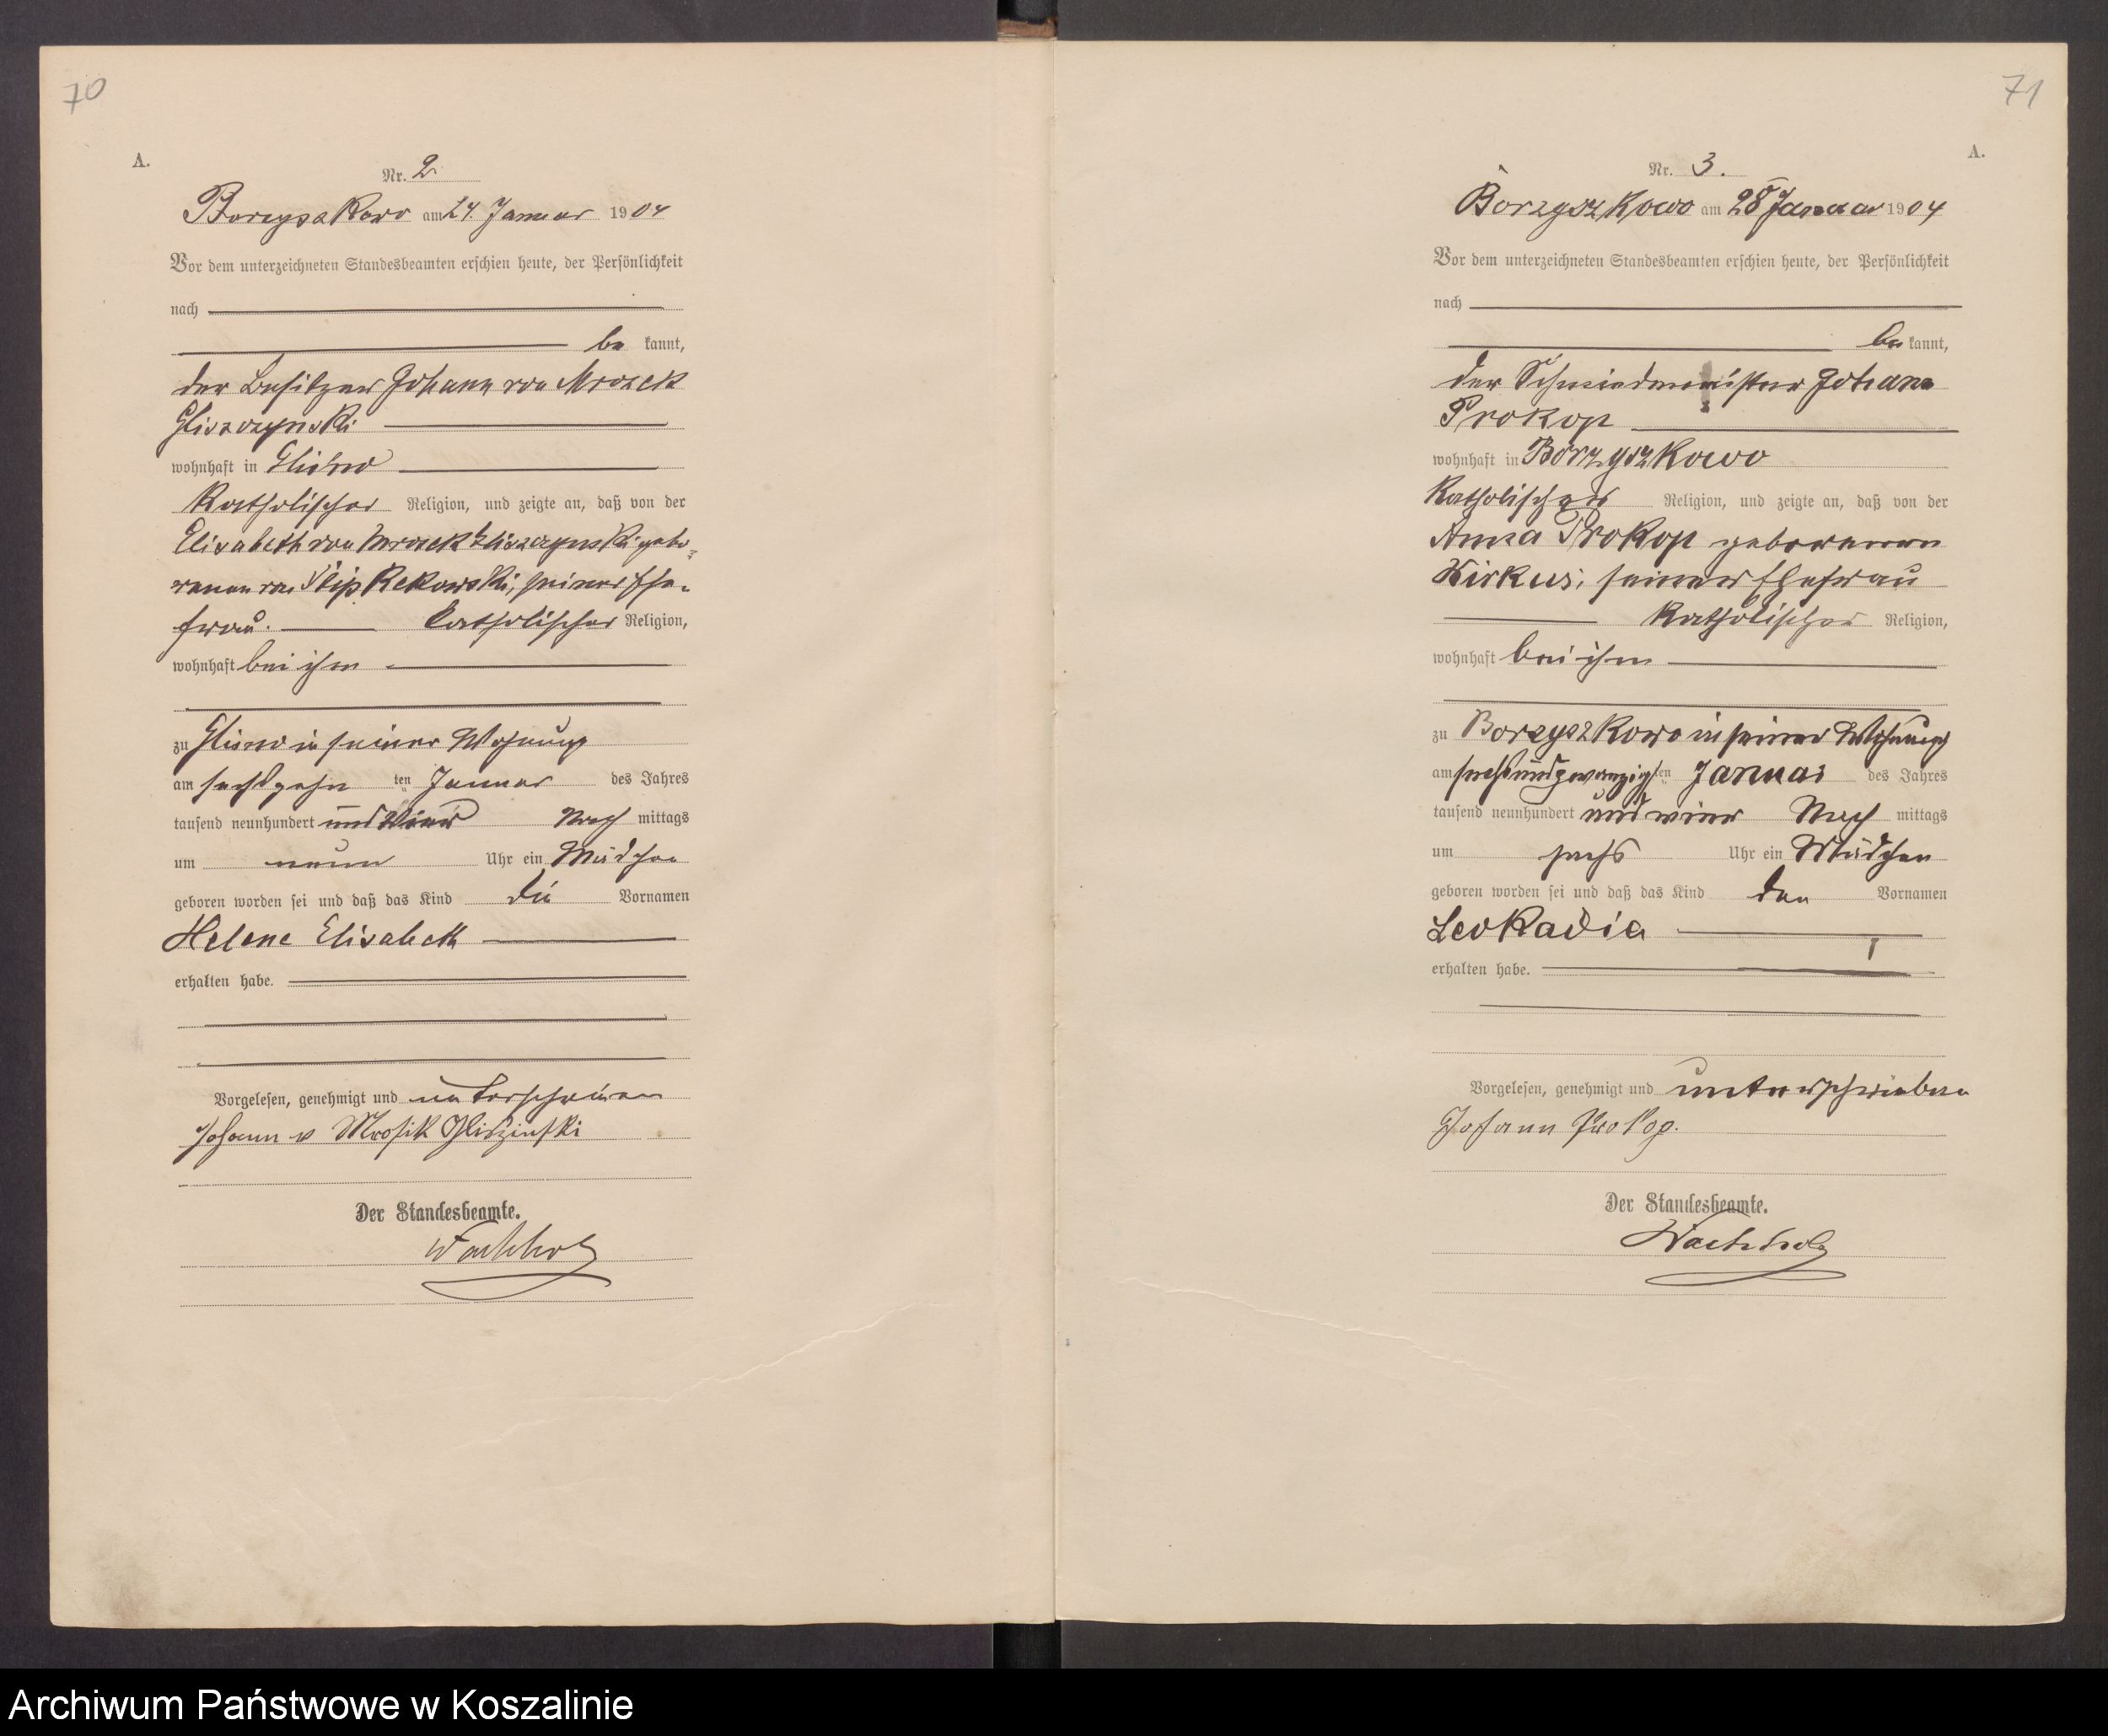 70
A.
Nr. 2.
Borzyszkowo am 24. Januar 1904
Vor dem unterzeichneten Standesbeamten erschien heute, der Persönlichkeit
nach
be kannt,
der Besitzer Johann von Mrozek
Gliszczynski
wohnhaft in Glisno
katholischer Religion, und zeigte an, daß von der
Elisabeth von Mrozek Gliszczynski gebo-
renen von Rekowski, seiner Ehe-
frau. katholischer Religion,
wohnhaft bei ihm
zu Glisno in seiner Wohnung
am sechszehn ten Januar des Jahres
tausend neunhundert und vier Nach mittags
um neun Uhr ein Mädchen
geboren worden sei und daß das Kind die Vornamen
Helene Elisabeth
erhalten habe.
Vorgelesen, genehmigt und unterschrieben
Johann v Mrosik Gliszinski
Der Standesbeamte.
Wachholz
71
A.
Nr. 3.
Borzyszkowo am 28 Januar 1904
Vor dem unterzeichneten Standesbeamten erschien heute, der Persönlichkeit
nach
be kannt,
der Schmiedemeister Johann
Prokop
wohnhaft in Borzyszkowo
katholischer Religion, und zeigte an, daß von der
Anna Prokop geborenen
Kirkus, seiner Ehefrau
katholischer Religion,
wohnhaft bei ihm
zu Borzyszkowo in seiner Wohnung
am sechsundzwanzigsten Januar des Jahres
tausend neunhundert und vier Nach mittags
um sechs Uhr ein Mädchen
geboren worden sei und daß das Kind den Vornamen
Leokadia
erhalten habe.
Vorgelesen, genehmigt und unterschrieben
Johann Prokop.
Der Standesbeamte.
Wachholz
Archiwum Państwowe w Koszalinie